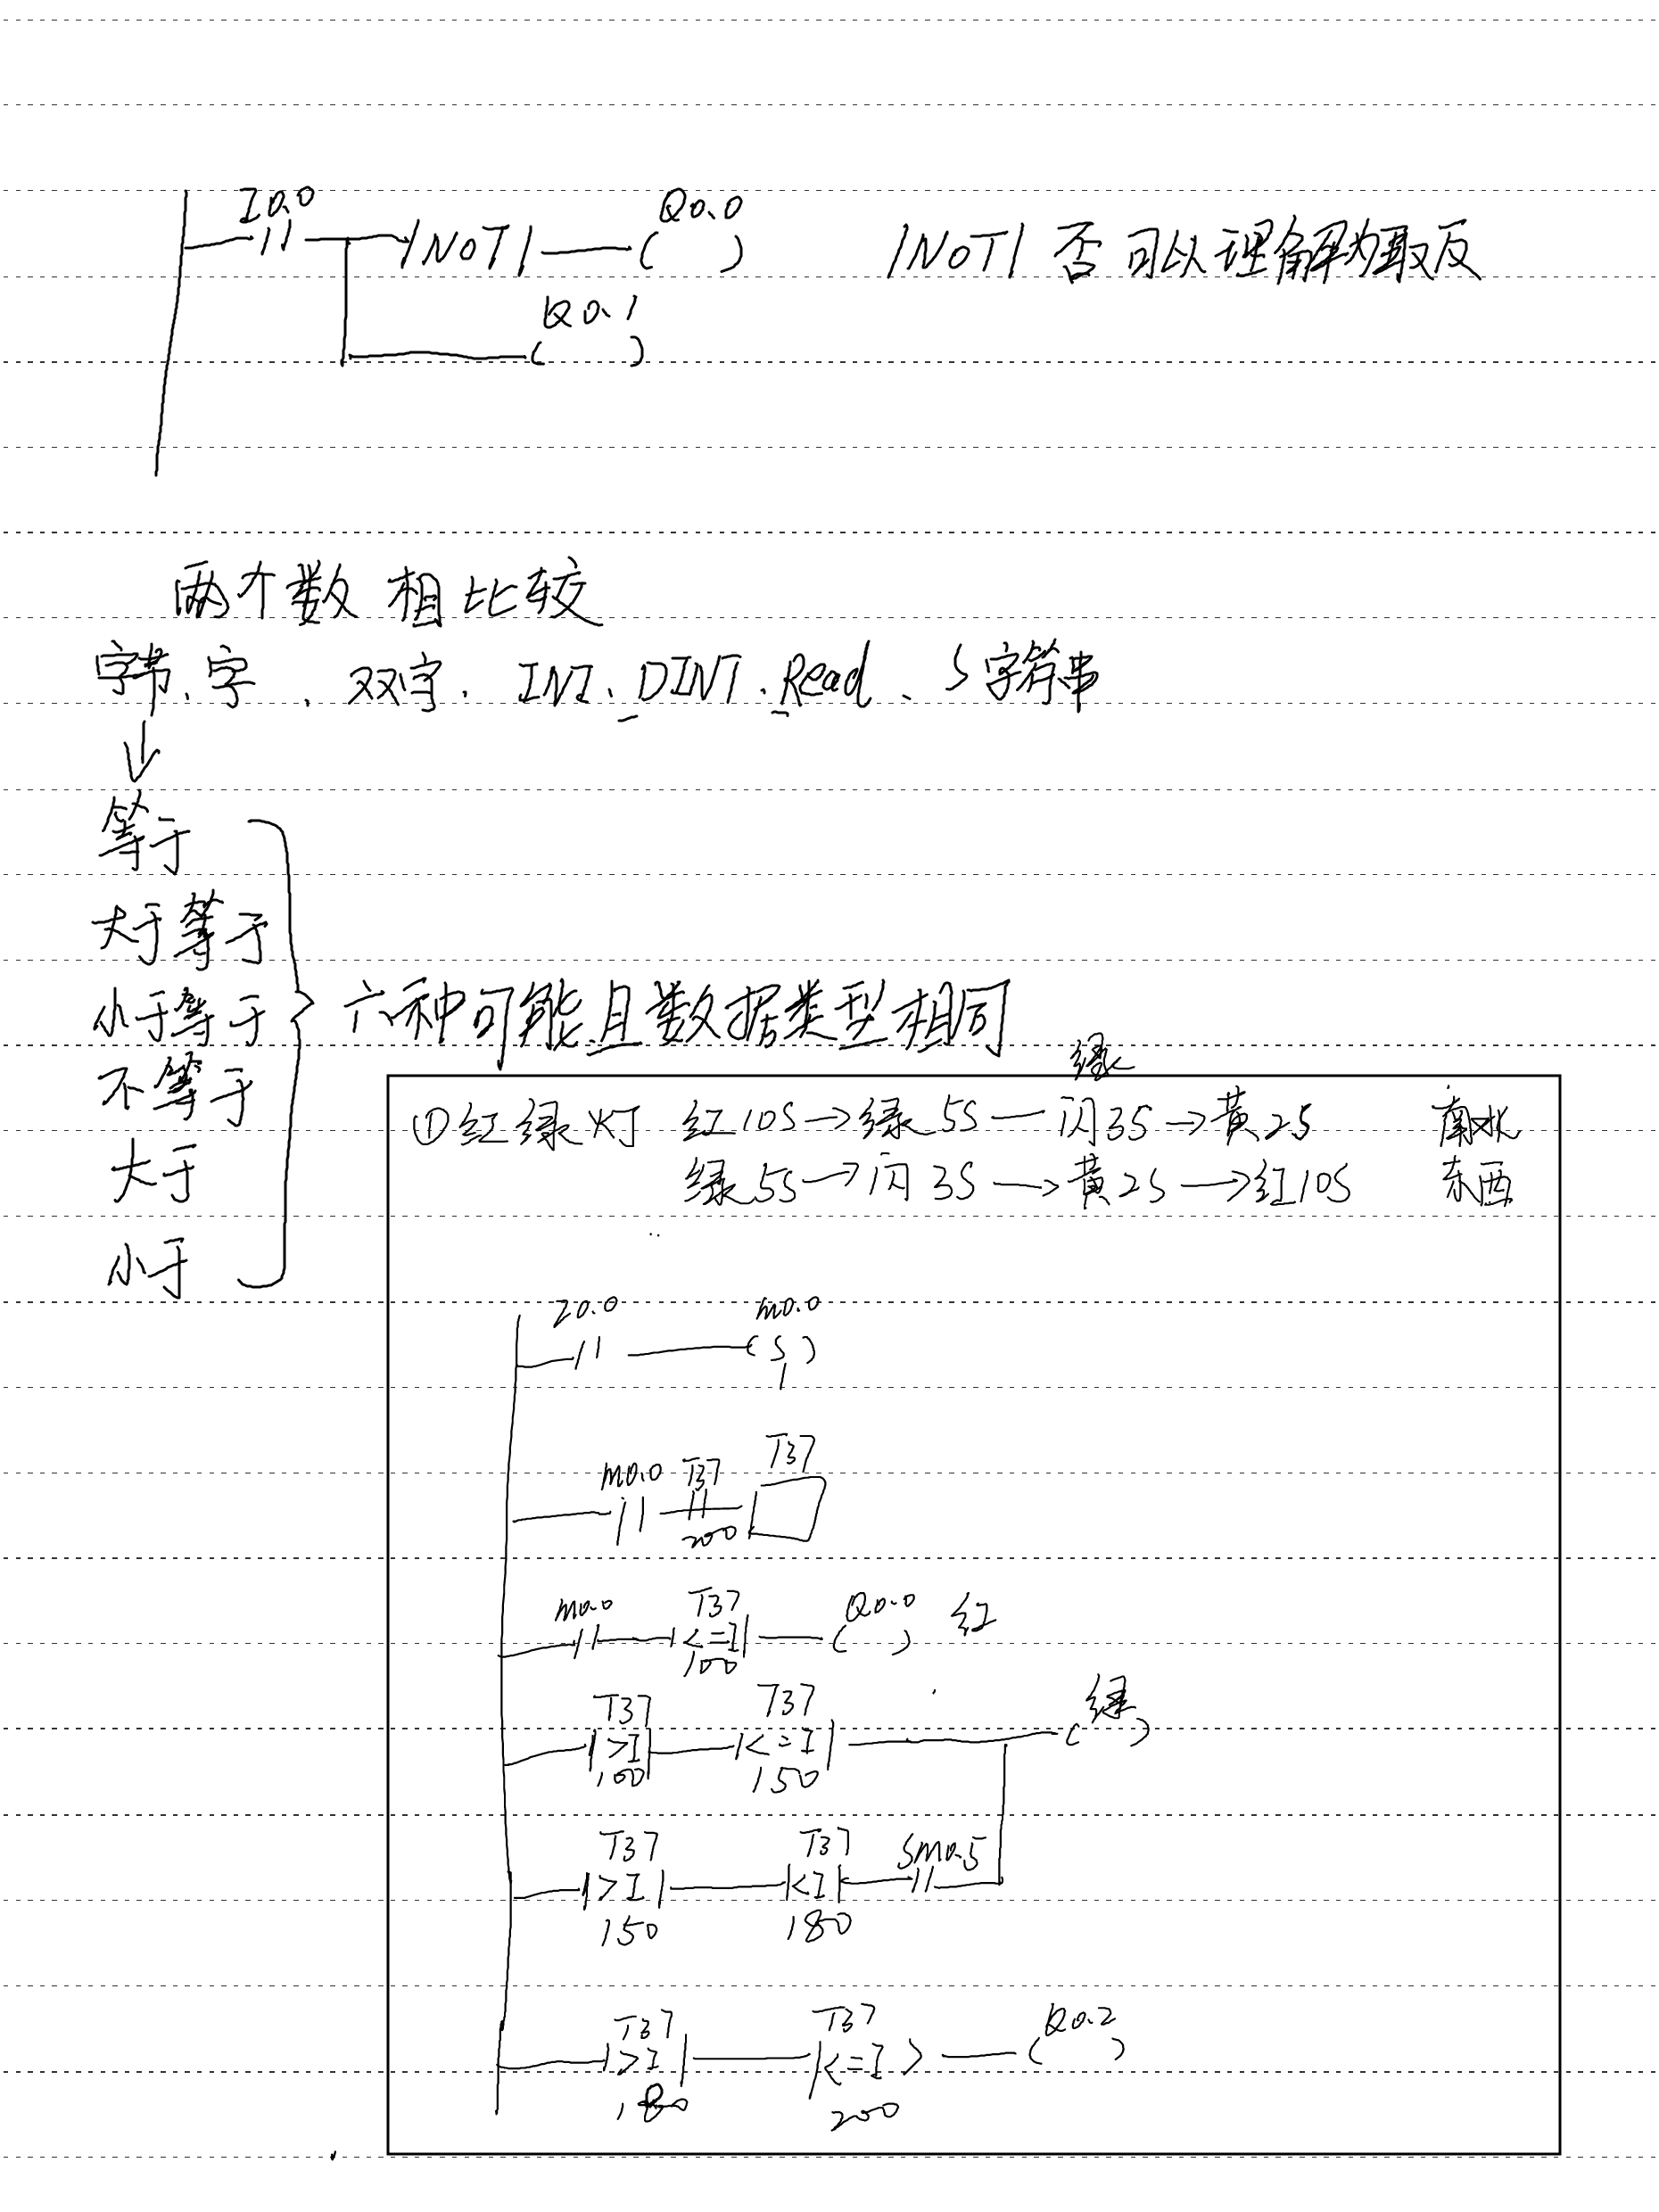 I0.0 |NOT| Q0.0 ( ) |NOT| 否 可以理解为取反
Q0.1 ( )
两个数 相比较
字节、字、双字、INT、DINT、Read、S字符串
↓
等于
大于等于
小于等于 六种可能且数据类型相同
不等于
大于
小于
绿
①红绿灯 红10S→绿5S—闪3S→黄2S 南北
绿5S→闪3S→黄2S→红10S 东西
I0.0 M0.0
(S)
1
M0.0 T37 T37
200
M0.0 T37 Q0.0 红
<=I
100
T37 T37 绿
>I <=I
100 150
T37 T37 SM0.5
>I <I
150 180
T37 T37 Q0.2
>I <=I
180 200